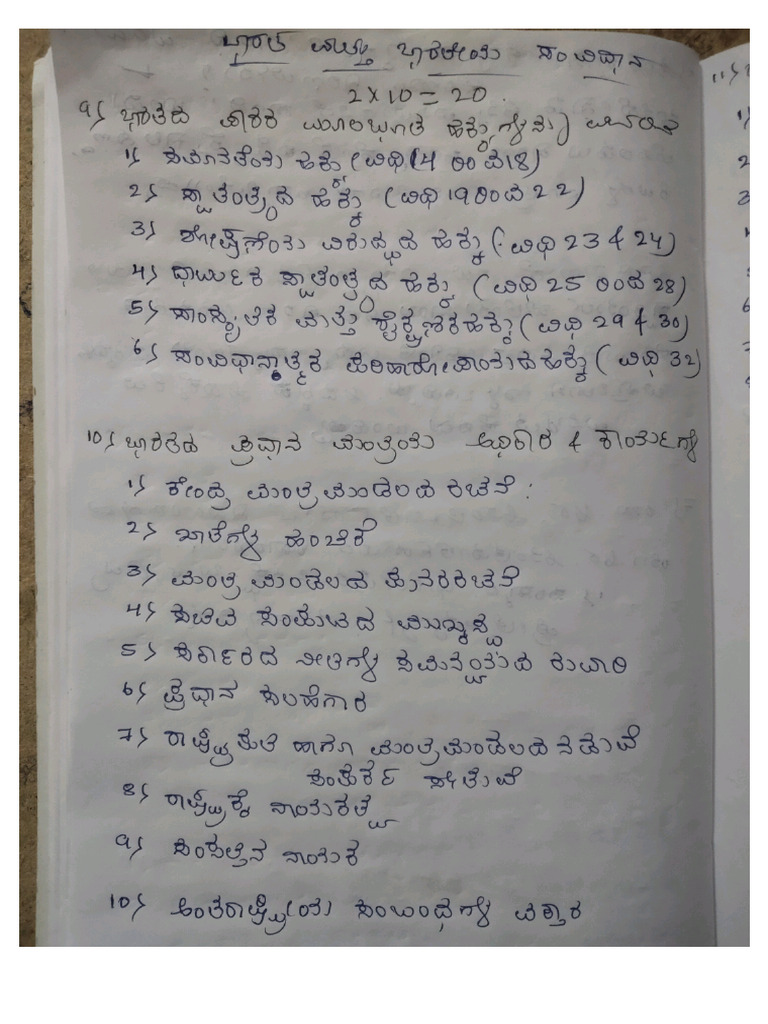 ಭಾರತ ಮತ್ತು ಭಾರತೀಯ ಸಂವಿಧಾನ
2 x 10 = 20
9) ಭಾರತದ ಮೂಲಭೂತ ಹಕ್ಕುಗಳನ್ನು
1) ಸಮಾನತೆಯ ಹಕ್ಕು (ವಿಧಿ 14 ರಿಂದ 18)
2) ಸ್ವಾತಂತ್ರ್ಯದ ಹಕ್ಕು (ವಿಧಿ 19 ರಿಂದ 22)
3) ಶೋಷಣೆಯ ವಿರುದ್ಧದ ಹಕ್ಕು (ವಿಧಿ 23 & 24)
4) ಧಾರ್ಮಿಕ ಸ್ವಾತಂತ್ರ್ಯದ ಹಕ್ಕು (ವಿಧಿ 25 ರಿಂದ 28)
5) ಸಾಂಸ್ಕೃತಿಕ ಮತ್ತು ಶೈಕ್ಷಣಿಕ ಹಕ್ಕು (ವಿಧಿ 29 & 30)
6) ಸಂವಿಧಾನಾತ್ಮಕ ಪರಿಹಾರೋಪಾಯದ ಹಕ್ಕು (ವಿಧಿ 32)
10) ಭಾರತದ ಪ್ರಧಾನ ಮಂತ್ರಿಯ ಅಧಿಕಾರ & ಕಾರ್ಯಗಳು
1) ಕೇಂದ್ರ ಮಂತ್ರಿಮಂಡಲದ ರಚನೆ :
2) ಖಾತೆಗಳ ಹಂಚಿಕೆ
3) ಮಂತ್ರಿಮಂಡಲದ ಪುನರರಚನೆ
4) ಸಚಿವ ಸಂಪುಟದ ಮುಖ್ಯಸ್ಥ
5) ಸರ್ಕಾರದ ನೀತಿಗಳ ಸಮನ್ವಯದ ರುವಾರಿ
6) ಪ್ರಧಾನ ಸಲಹೆಗಾರ
7) ರಾಷ್ಟ್ರಪತಿ ಹಾಗೂ ಮಂತ್ರಿಮಂಡಲದ ನಡುವೆ
ಸಂಪರ್ಕ ಸೇತುವೆ
8) ರಾಷ್ಟ್ರಕ್ಕೆ ನಾಯಕತ್ವ
9) ಸಂಸತ್ತಿನ ನಾಯಕ
10) ಅಂತರಾಷ್ಟ್ರೀಯ ಸಂಬಂಧಗಳ ವಕ್ತಾರ